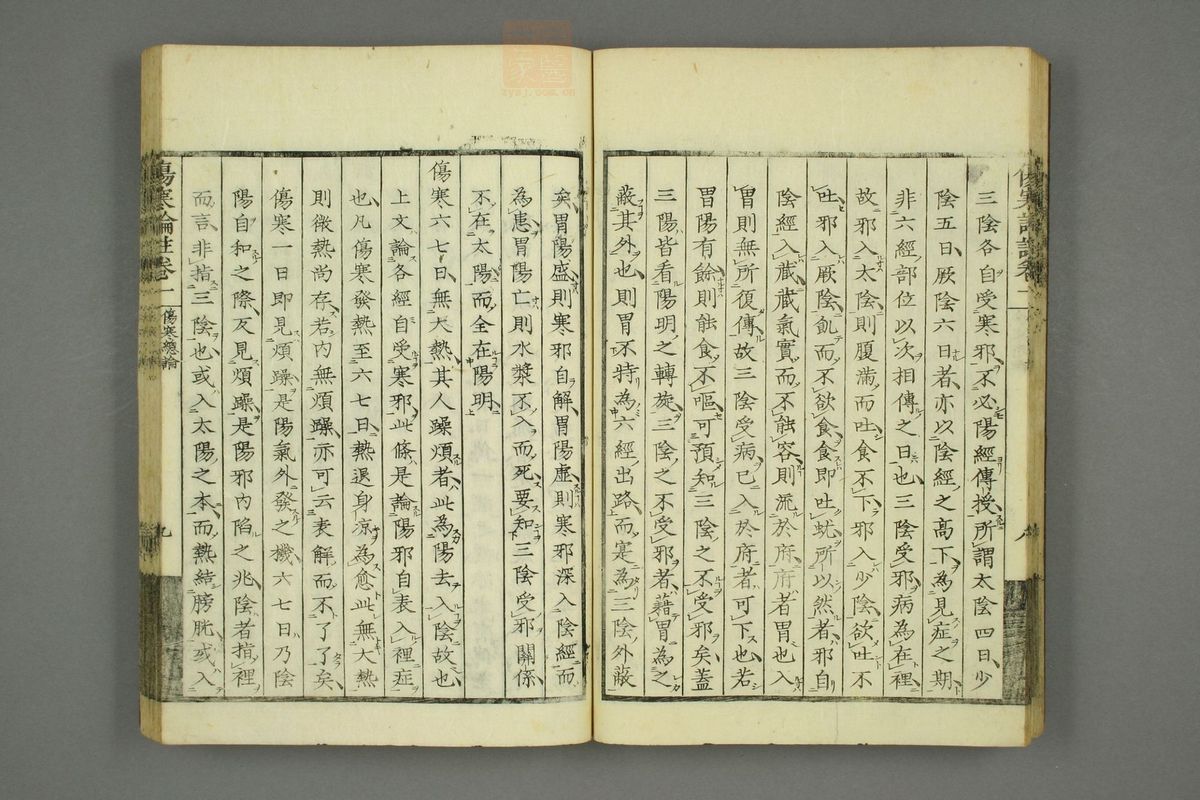 三陰各自受寒邪不必陽經傳授所謂太陰四日少
陰五日厥陰六日者亦以陰經之高下為見症之期
非六經部位以次相傳之日也三陰受邪病為在裡
故邪入太陰則腹滿而吐食不下邪入少陰欲吐不
吐邪入厥陰飢而不欲食食即吐蚘所以然者邪自
陰經入藏藏氣實而不能容則流於府府者胃也入
胃則無所復傳故三陰受病已入於府者可下也若
胃陽有餘則能食不嘔可預知三陰之不受邪矣蓋
三陽皆看陽明之轉旋三陰之不受邪者藉胃為之
蔽其外也則胃不特為六經出路而寔為三陰外蔽
矣胃陽盛則寒邪自解胃陽虛則寒邪深入陰經而
為患胃陽亡則水漿不入而死要知三陰受邪關係
不在太陽而全在陽明
傷寒六七日無大熱其人躁煩者此為陽去入陰故也
上文論各經自受寒邪此條是論陽邪自表入裡症
也凡傷寒發熱至六七日熱退身凉為愈此無大熱
則微熱尚存若內無煩躁亦可云表解而不了了矣
傷寒一日即見煩躁是陽氣外發之機六七日乃陰
陽自和之際反見煩躁是陽邪內陷之兆陰者指裡
而言非指三陰也或入太陽之本而熱結膀胱或入
傷寒論註卷一
傷寒總論
九